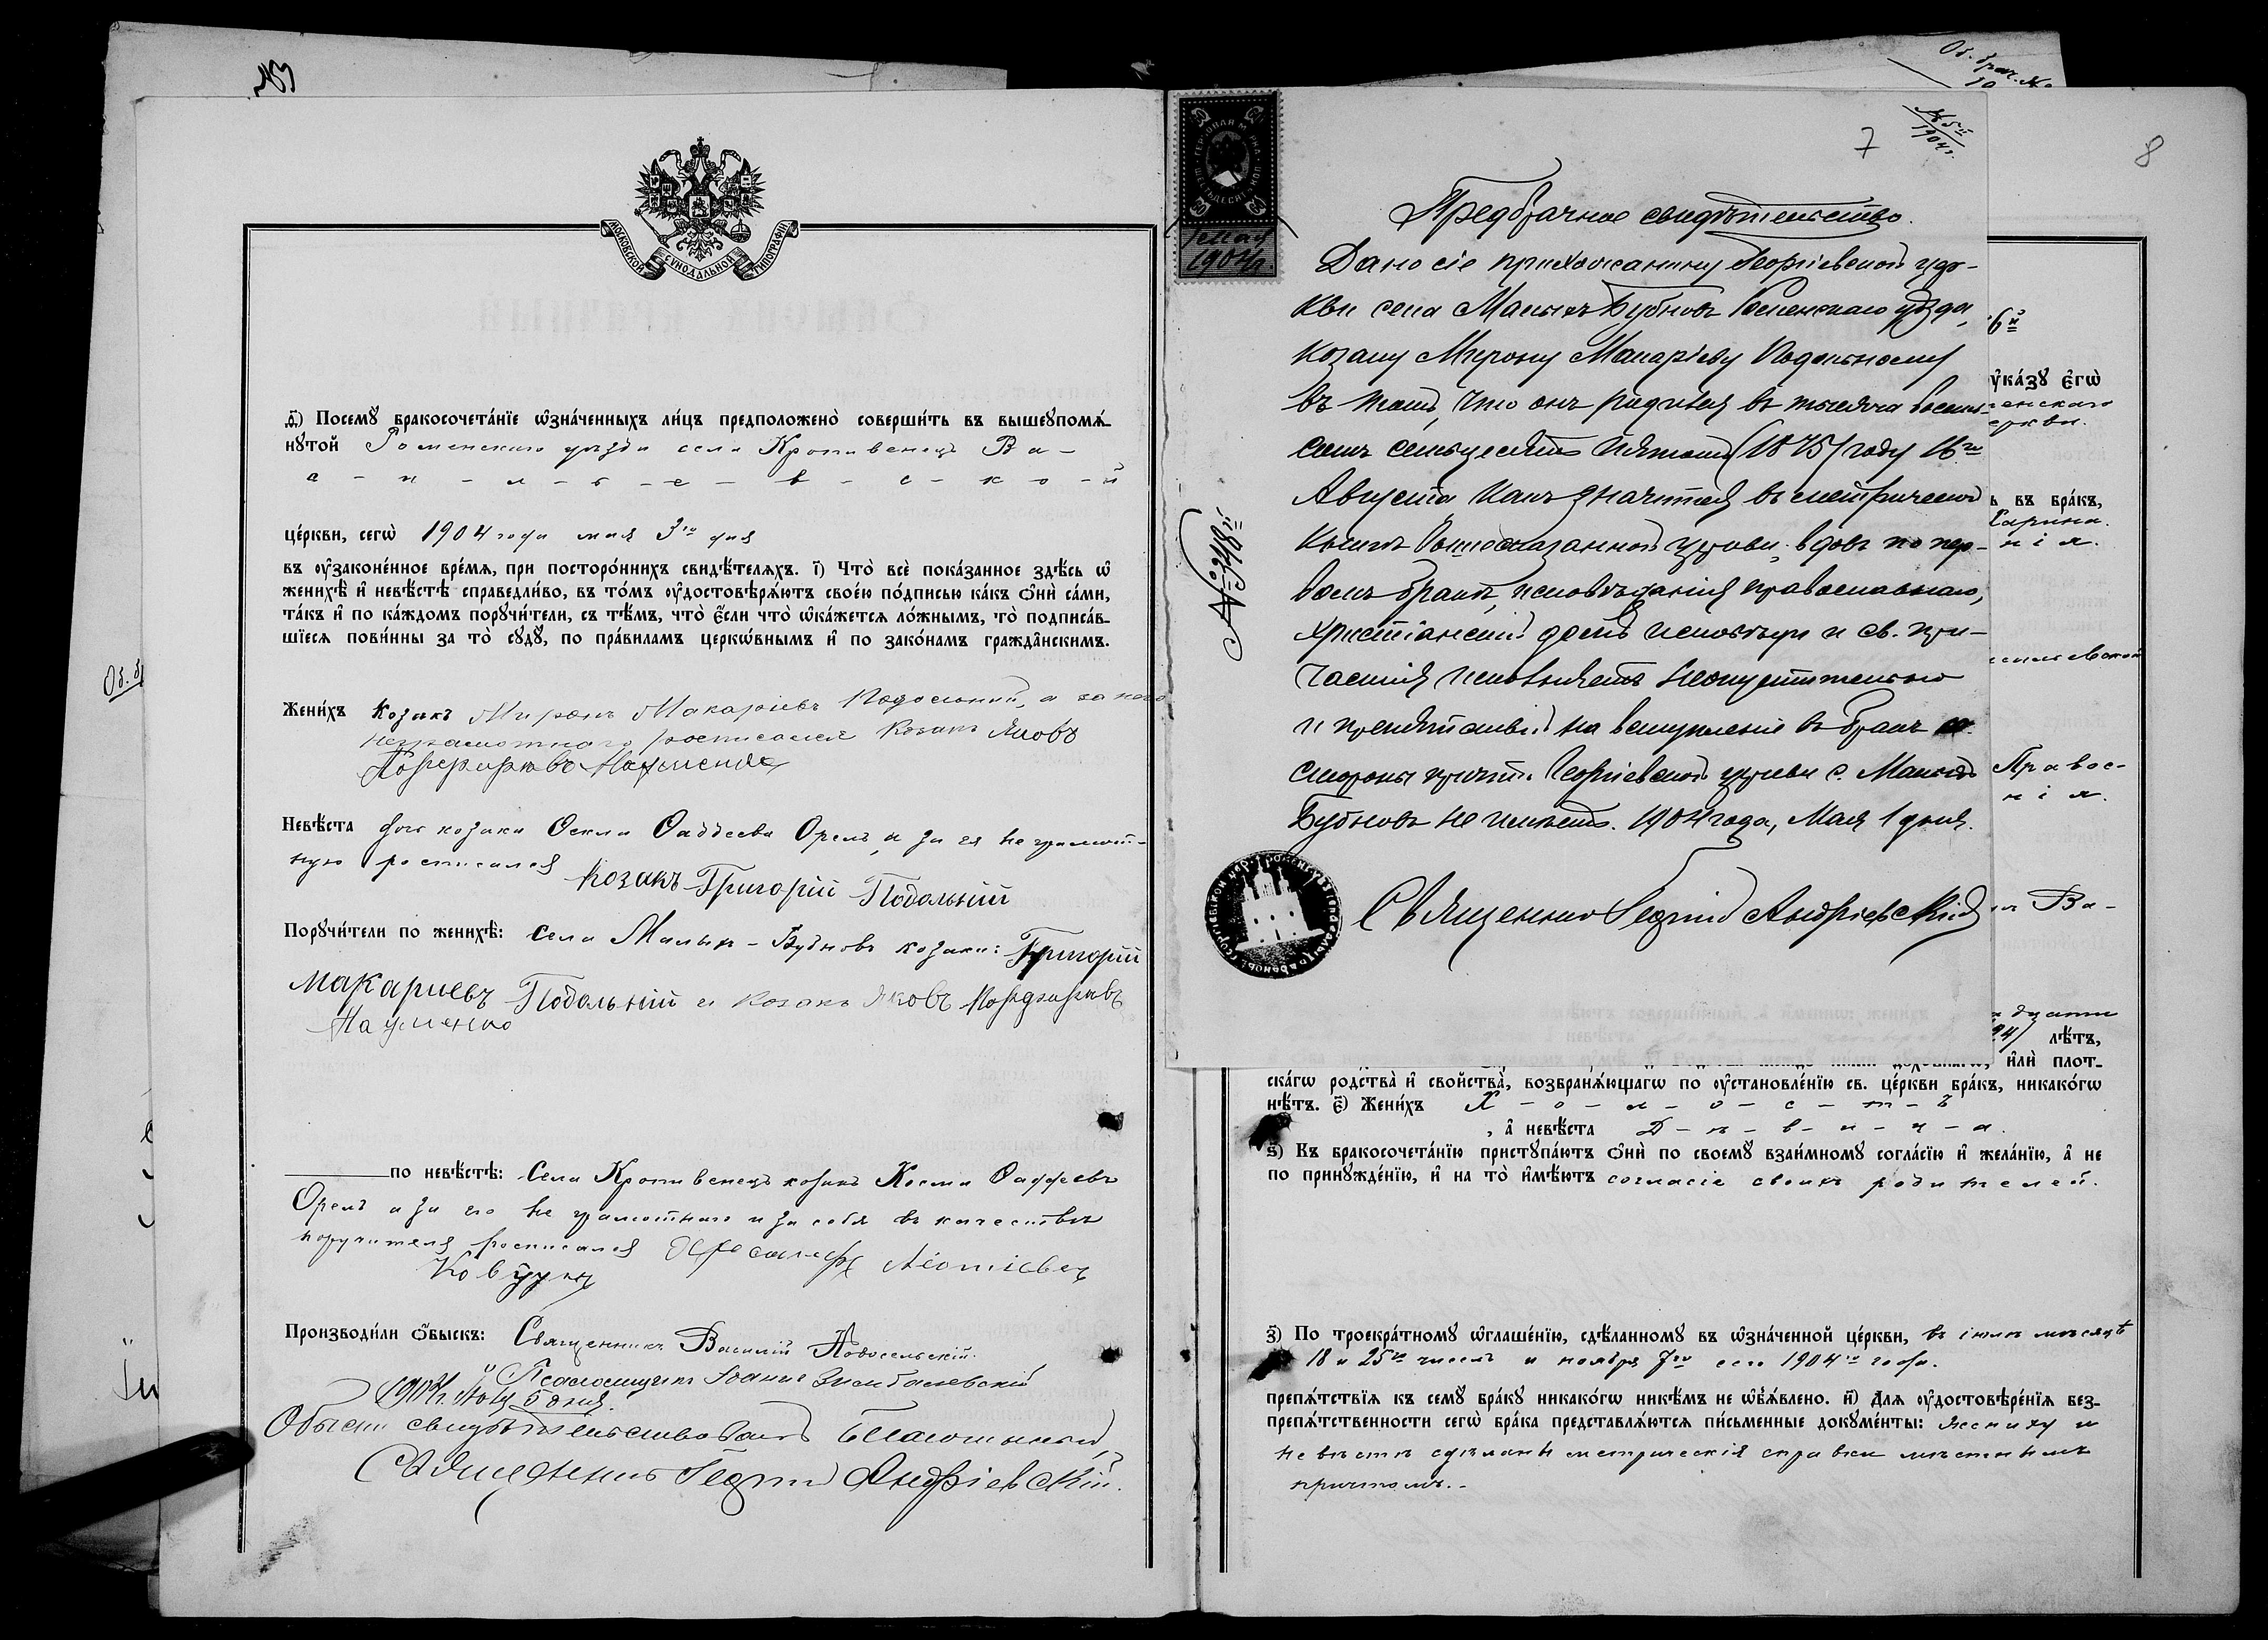 №3
МОСКОВСКОЙ СѴНОДАЛЬНОЙ ТИПОГРАФІИ
д҃) Посемꙋ̀ бракосочета́нїе ѡ҆зна́ченныхъ ли́цъ предположено̀ соверши́ть въ вышеꙋпомѧ́-
нꙋтой Роменскаго уѣзда села Кропивенецъ Ва-
с - и - л - ь - е - в - с - к - о - й
це́ркви, сегѡ̀ 1904 года мая 3го дня
въ оу҆зако́ненное вре́мѧ, при посторо́ннихъ свидѣ́телѧхъ. і҃) Что̀ всѐ пока́занное здѣ́сь ѡ҆
женихѣ̀ и҆ невѣ́стѣ справедли́во, въ то́мъ оу҆достовѣрѧ́ютъ свое́ю по́дписью ка́къ ѻ҆нѝ са́ми,
та́къ и҆ по ка́ждомъ порꙋчи́тели, съ тѣ́мъ, что̀ є҆́сли что̀ ѡ҆ка́жетсѧ ло́жнымъ, то̀ подписа́в-
шїесѧ пови́нны за то̀ сꙋдꙋ̀, по пра́виламъ церкѡ́внымъ и҆ по зако́намъ гражда̑нскимъ.
Жени́хъ Козакъ Миронъ Макаріевъ Подольный, а за него
неграмотнаго росписался Козакъ Яковъ
Порфирьевъ Науменко
Невѣ́ста дочь козака Ѳекла Ѳаддеева Орелъ, а за ея неграмот-
ную росписался Козакъ Григорій Подольній
Порꙋчи́тели по женихѣ̀: Села Малыхъ-Бубновъ козаки: Григорій
Макариевъ Подольній и Козакъ Яковъ Порфирьевъ
Науменко
по невѣ́стѣ: Села Кропивенецъ козакъ Косма Ѳаддеевъ
Орелъ а за его неграмотнаго и за себя въ качествѣ
поручителя росписался Леонтіевъ
Производи́ли ѻ҆́быскъ: Священникъ Василій
Псаломщикъ Іоаннъ
1904 г. 5 дня.
Обыскъ свидѣтельствовалъ Благочинный,
Священникъ Георгій Андріевскій.
7
№ 5й
1904 г.
8
1 мая
1904 г.
№ 348й
Предбрачное свидѣтельство.
Дано сіе прихожанину Георгіевской цер-
кви села Малыхъ Бубновъ Роменскаго уѣзда,
козаку Мирону Макаріеву Подольному
въ томъ, что онъ родился въ тысяча восемь-
сотъ семьдесятъ пятомъ (1875) году 16го
Августа, какъ значится въ метрической
книгѣ вышесказанной церкви; вдовъ по пер-
вомъ бракѣ, исповѣданія православнаго,
христіанскій долгъ исповѣди и св. при-
частія исполняетъ неопустительно
и препятствій на вступленіе въ бракъ со
стороны причта Георгіевской церкви с. Малыхъ
Бубновъ не имѣетъ. 1904 года, Мая 1 дня.
Священникъ Георгій Андріевскій
6й
оу҆ка́зꙋ є҆гѡ̀
енскаго
еркви.
ь въ бра́къ,
нія.
сильевской
Правос-
нія.
Ва-
лѣ́тъ,
и҆лѝ плот-
ска́гѡ родства̀ и҆ свойства̀, возбранѧ́ющагѡ по оу҆становле́нїю св. це́ркви бра́къ, никако́гѡ
нѣ́тъ. є҃) Жени́хъ Х - о - л - о - с - т - ъ
, а҆ невѣ́ста Д - ѣ - в - и - ц - а.
ѕ҃) Къ бракосочета́нїю пристꙋпа́ютъ ѻ҆нѝ по своемꙋ̀ взаи́мномꙋ согла́сїю и҆ жела́нїю, а҆ не
по принꙋжде́нїю, и҆ на то̀ и҆мѣ́ютъ согласіе своихъ родителей.
з҃) По троекра́тномꙋ ѡ҆глаше́нїю, сдѣ́ланномꙋ въ ѡ҆зна́ченной це́ркви, въ іюлѣ мѣсяцѣ
18 и 25го чиселъ и ноября 7го сего 1904го года.
препѧ́тствїѧ къ семꙋ̀ бра́кꙋ никако́гѡ никѣ́мъ не ѡ҆б̾ѧ́влено. и҃) Длѧ оу҆достовѣре́нїѧ без-
препѧ́тственности сегѡ̀ бра́ка представлѧ́ютсѧ пи́сьменные докꙋме́нты: жениху и
невѣстѣ сдѣланы метрическія справки мѣстнымъ
причтомъ.